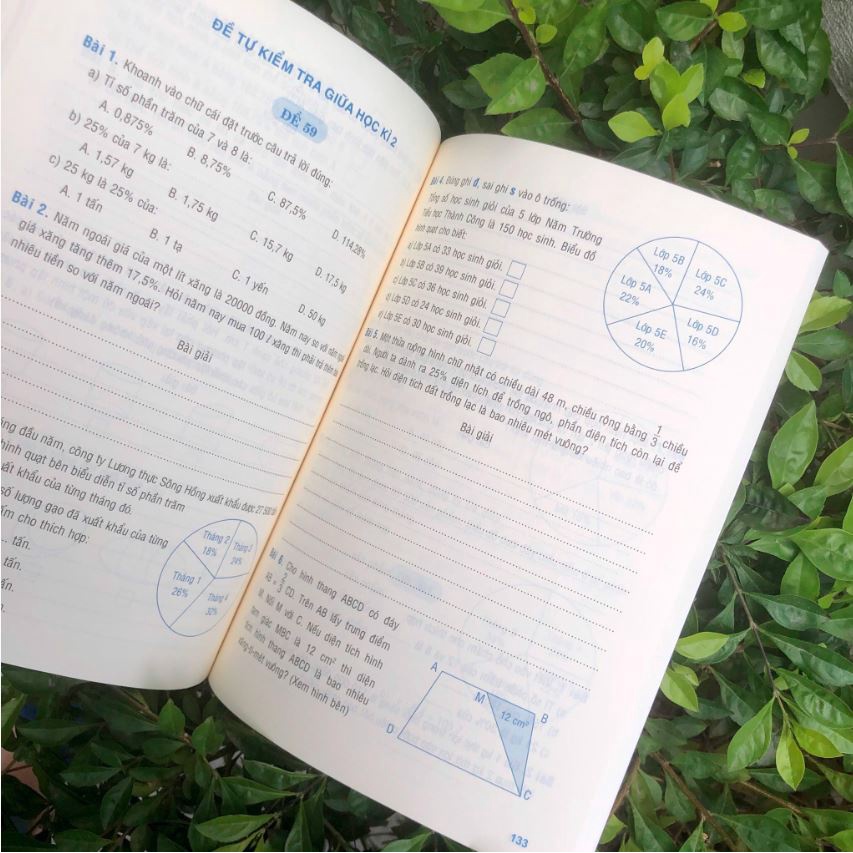 ĐỀ TỰ KIỂM TRA GIỮA HỌC KÌ 2
ĐỀ 59
Bài 1. Khoanh vào chữ cái đặt trước câu trả lời đúng:
a) Tỉ số phần trăm của 7 và 8 là:
A. 0,875% B. 8,75% C. 87,5% D. 114,28%
b) 25% của 7 kg là:
A. 1,57 kg B. 1,75 kg C. 15,7 kg D. 17,5 kg
c) 25 kg là 25% của:
A. 1 tấn B. 1 tạ C. 1 yến D. 50 kg
Bài 2. Năm ngoái giá của một lít xăng là 20000 đồng. Năm nay so với năm ngoái
giá xăng tăng thêm 17,5%. Hỏi năm nay mua 100 l xăng thì phải trả thêm
nhiêu tiền so với năm ngoái?
Bài giải
áng đầu năm, công ty Lương thực Sông Hồng xuất khẩu được 27 500
hình quạt bên biểu diễn tỉ số phần trăm
uất khẩu của từng tháng đó.
số lượng gạo đã xuất khẩu của từng
ấm cho thích hợp:
... tấn.
tấn.
ấn.
Tháng 2
18%
Tháng 3
24%
Tháng 1
26%
Tháng 4
32%
Bài 4. Đúng ghi đ, sai ghi s vào ô trống:
Tổng số học sinh giỏi của 5 lớp Năm Trường
Tiểu học Thành Công là 150 học sinh. Biểu đồ
hình quạt cho biết:
a) Lớp 5A có 33 học sinh giỏi.
b) Lớp 5B có 39 học sinh giỏi.
c) Lớp 5C có 36 học sinh giỏi.
d) Lớp 5D có 24 học sinh giỏi.
e) Lớp 5E có 30 học sinh giỏi.
Lớp 5B
18%
Lớp 5C
24%
Lớp 5A
22%
Lớp 5D
16%
Lớp 5E
20%
Bài 5. Một thửa ruộng hình chữ nhật có chiều dài 48 m, chiều rộng bằng 1/3 chiều
dài. Người ta dành ra 25% diện tích để trồng ngô, phần diện tích còn lại để
trồng lạc. Hỏi diện tích đất trồng lạc là bao nhiêu mét vuông?
Bài giải
Bài 6. Cho hình thang ABCD có đáy
AB = 2/3 CD. Trên AB lấy trung điểm
M. Nối M với C. Nếu diện tích hình
tam giác MBC là 12 cm² thì diện
tích hình thang ABCD là bao nhiêu
xăng-ti-mét vuông? (Xem hình bên)
A
M
B
12 cm²
D
C
133